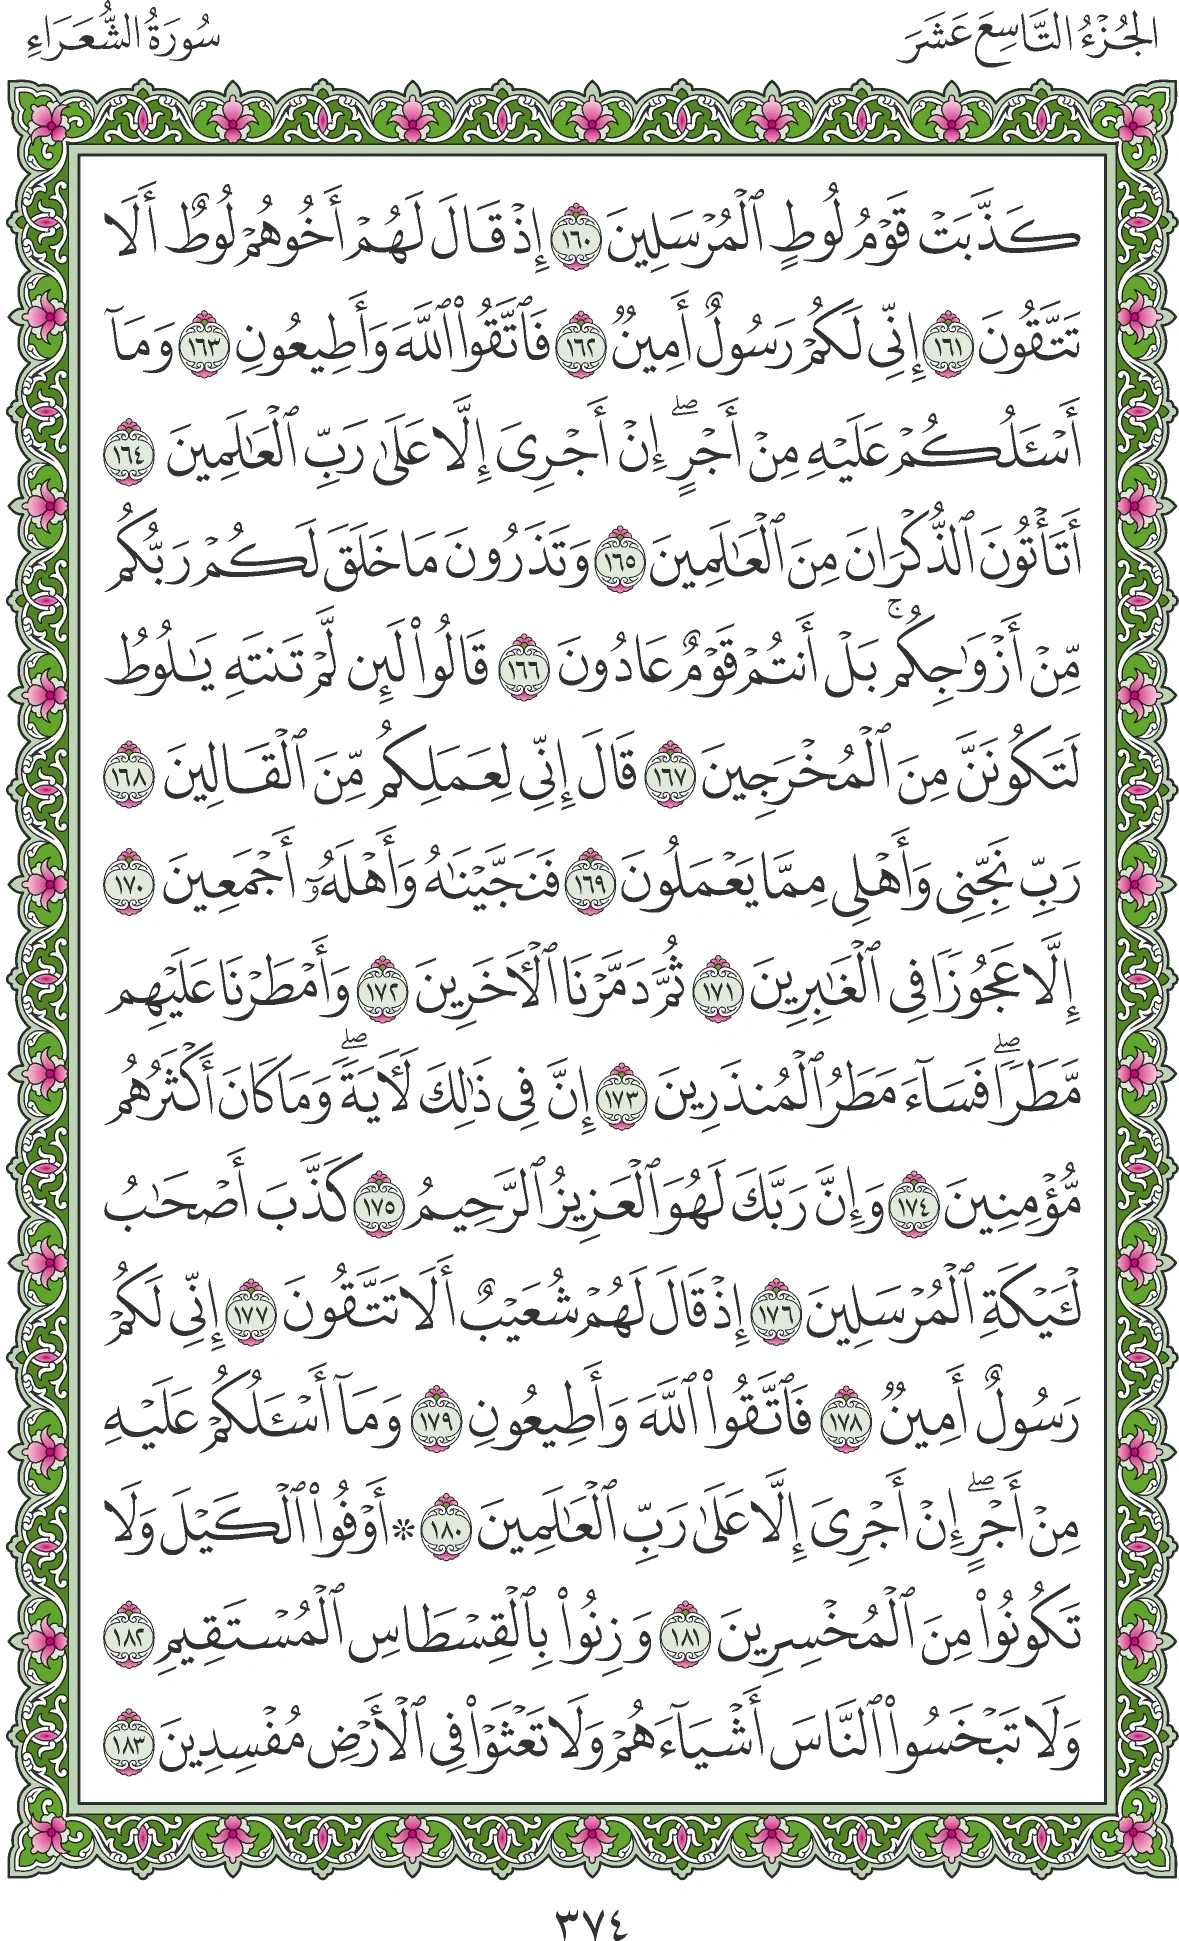 الجُزْءُ التَّاسِعَ عَشَرَ
سُورَةُ الشُّعَرَاءِ
كَذَّبَتۡ قَوۡمُ لُوطٍ ٱلۡمُرۡسَلِينَ ١٦٠ إِذۡ قَالَ لَهُمۡ أَخُوهُمۡ لُوطٌ أَلَا
تَتَّقُونَ ١٦١ إِنِّي لَكُمۡ رَسُولٌ أَمِينٞ ١٦٢ فَٱتَّقُواْ ٱللَّهَ وَأَطِيعُونِ ١٦٣ وَمَآ
أَسۡـَٔلُكُمۡ عَلَيۡهِ مِنۡ أَجۡرٍۖ إِنۡ أَجۡرِيَ إِلَّا عَلَىٰ رَبِّ ٱلۡعَٰلَمِينَ ١٦٤
أَتَأۡتُونَ ٱلذُّكۡرَانَ مِنَ ٱلۡعَٰلَمِينَ ١٦٥ وَتَذَرُونَ مَا خَلَقَ لَكُمۡ رَبُّكُم
مِّنۡ أَزۡوَٰجِكُمۚ بَلۡ أَنتُمۡ قَوۡمٌ عَادُونَ ١٦٦ قَالُواْ لَئِن لَّمۡ تَنتَهِ يَٰلُوطُ
لَتَكُونَنَّ مِنَ ٱلۡمُخۡرَجِينَ ١٦٧ قَالَ إِنِّي لِعَمَلِكُم مِّنَ ٱلۡقَالِينَ ١٦٨
رَبِّ نَجِّنِي وَأَهۡلِي مِمَّا يَعۡمَلُونَ ١٦٩ فَنَجَّيۡنَٰهُ وَأَهۡلَهُۥٓ أَجۡمَعِينَ ١٧٠
إِلَّا عَجُوزٗا فِي ٱلۡغَٰبِرِينَ ١٧١ ثُمَّ دَمَّرۡنَا ٱلۡأٓخَرِينَ ١٧٢ وَأَمۡطَرۡنَا عَلَيۡهِم
مَّطَرٗاۖ فَسَآءَ مَطَرُ ٱلۡمُنذَرِينَ ١٧٣ إِنَّ فِي ذَٰلِكَ لَأٓيَةٗۖ وَمَا كَانَ أَكۡثَرُهُم
مُّؤۡمِنِينَ ١٧٤ وَإِنَّ رَبَّكَ لَهُوَ ٱلۡعَزِيزُ ٱلرَّحِيمُ ١٧٥ كَذَّبَ أَصۡحَٰبُ
لۡـَٔيۡكَةِ ٱلۡمُرۡسَلِينَ ١٧٦ إِذۡ قَالَ لَهُمۡ شُعَيۡبٌ أَلَا تَتَّقُونَ ١٧٧ إِنِّي لَكُمۡ
رَسُولٌ أَمِينٞ ١٧٨ فَٱتَّقُواْ ٱللَّهَ وَأَطِيعُونِ ١٧٩ وَمَآ أَسۡـَٔلُكُمۡ عَلَيۡهِ
مِنۡ أَجۡرٍۖ إِنۡ أَجۡرِيَ إِلَّا عَلَىٰ رَبِّ ٱلۡعَٰلَمِينَ ١٨٠ * أَوۡفُواْ ٱلۡكَيۡلَ وَلَا
تَكُونُواْ مِنَ ٱلۡمُخۡسِرِينَ ١٨١ وَزِنُواْ بِٱلۡقِسۡطَاسِ ٱلۡمُسۡتَقِيمِ ١٨٢
وَلَا تَبۡخَسُواْ ٱلنَّاسَ أَشۡيَآءَهُمۡ وَلَا تَعۡثَوۡاْ فِي ٱلۡأَرۡضِ مُفۡسِدِينَ ١٨٣
٣٧٤